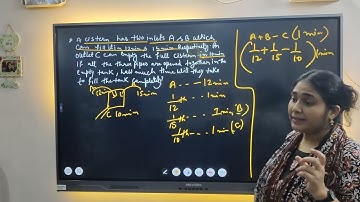 A cistern has two inlets A & B which
can fill it in 12 min & 15 min respectively. An
outlet C can empty the full cistern in 10 min.
If all the three pipes are opened together in the
empty tank, how much time will they take
to fill the tank completely?
A B
12m 15min
C 10min
A - - - - 12min
1/12 th - - - 1min
1/15 th - - - 1min (B)
1/10 th - - - 1min (C)
A + B - C (1min)
(1/12 + 1/15 - 1/10) 1min